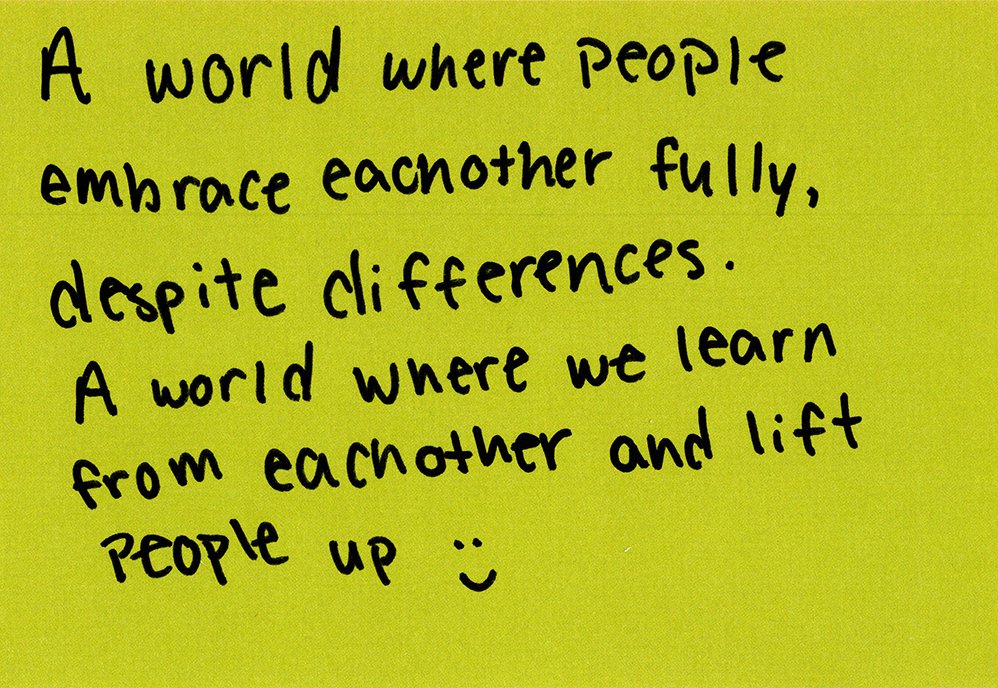 A world where people
embrace eachother fully,
despite differences.
A world where we learn
from eachother and lift
people up :)